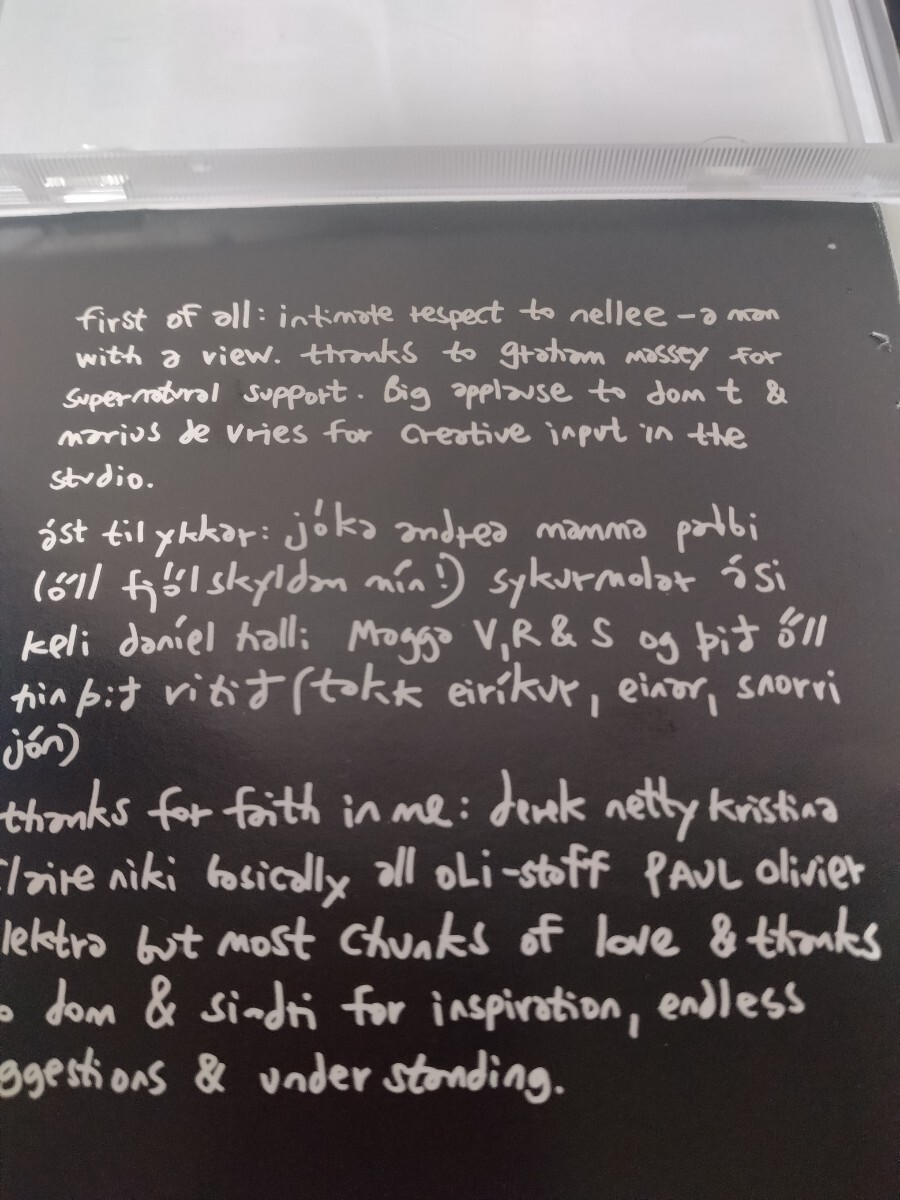 first of all: intimate respect to nellee - a man
with a view. thanks to graham massey for
supernatural support. Big applause to dom t &
marius de vries for creative input in the
studio.
ást til ykkar: jóka andrea mamma pabbi
(öll fjölskyldan mín!) sykurmolar ási
keli daníel halli Magga V, R & S og þið öll
hin þið vitið (takk eiríkur, einar, snorri
jón)
thanks for faith in me: derek netty kristina
claire niki basically all oLi-staff PAUL olivier
lektra but most chunks of love & thanks
o dom & sindri for inspiration, endless
ggestions & under standing.